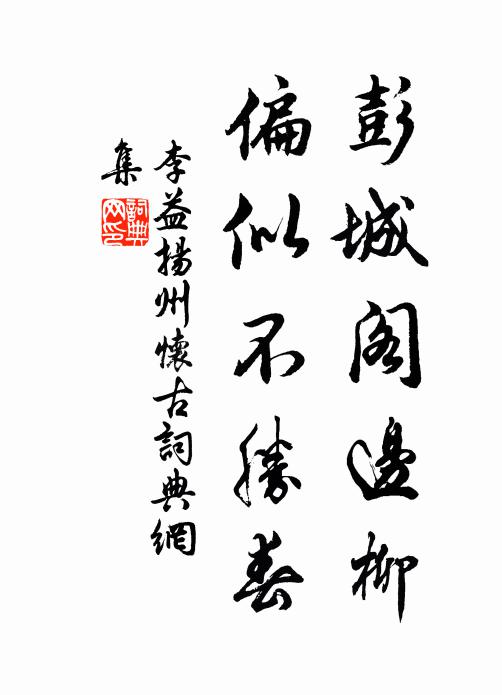 彭城閣邊柳
偏似不勝春
李益揚州懷古詞典網
集
詞典網印